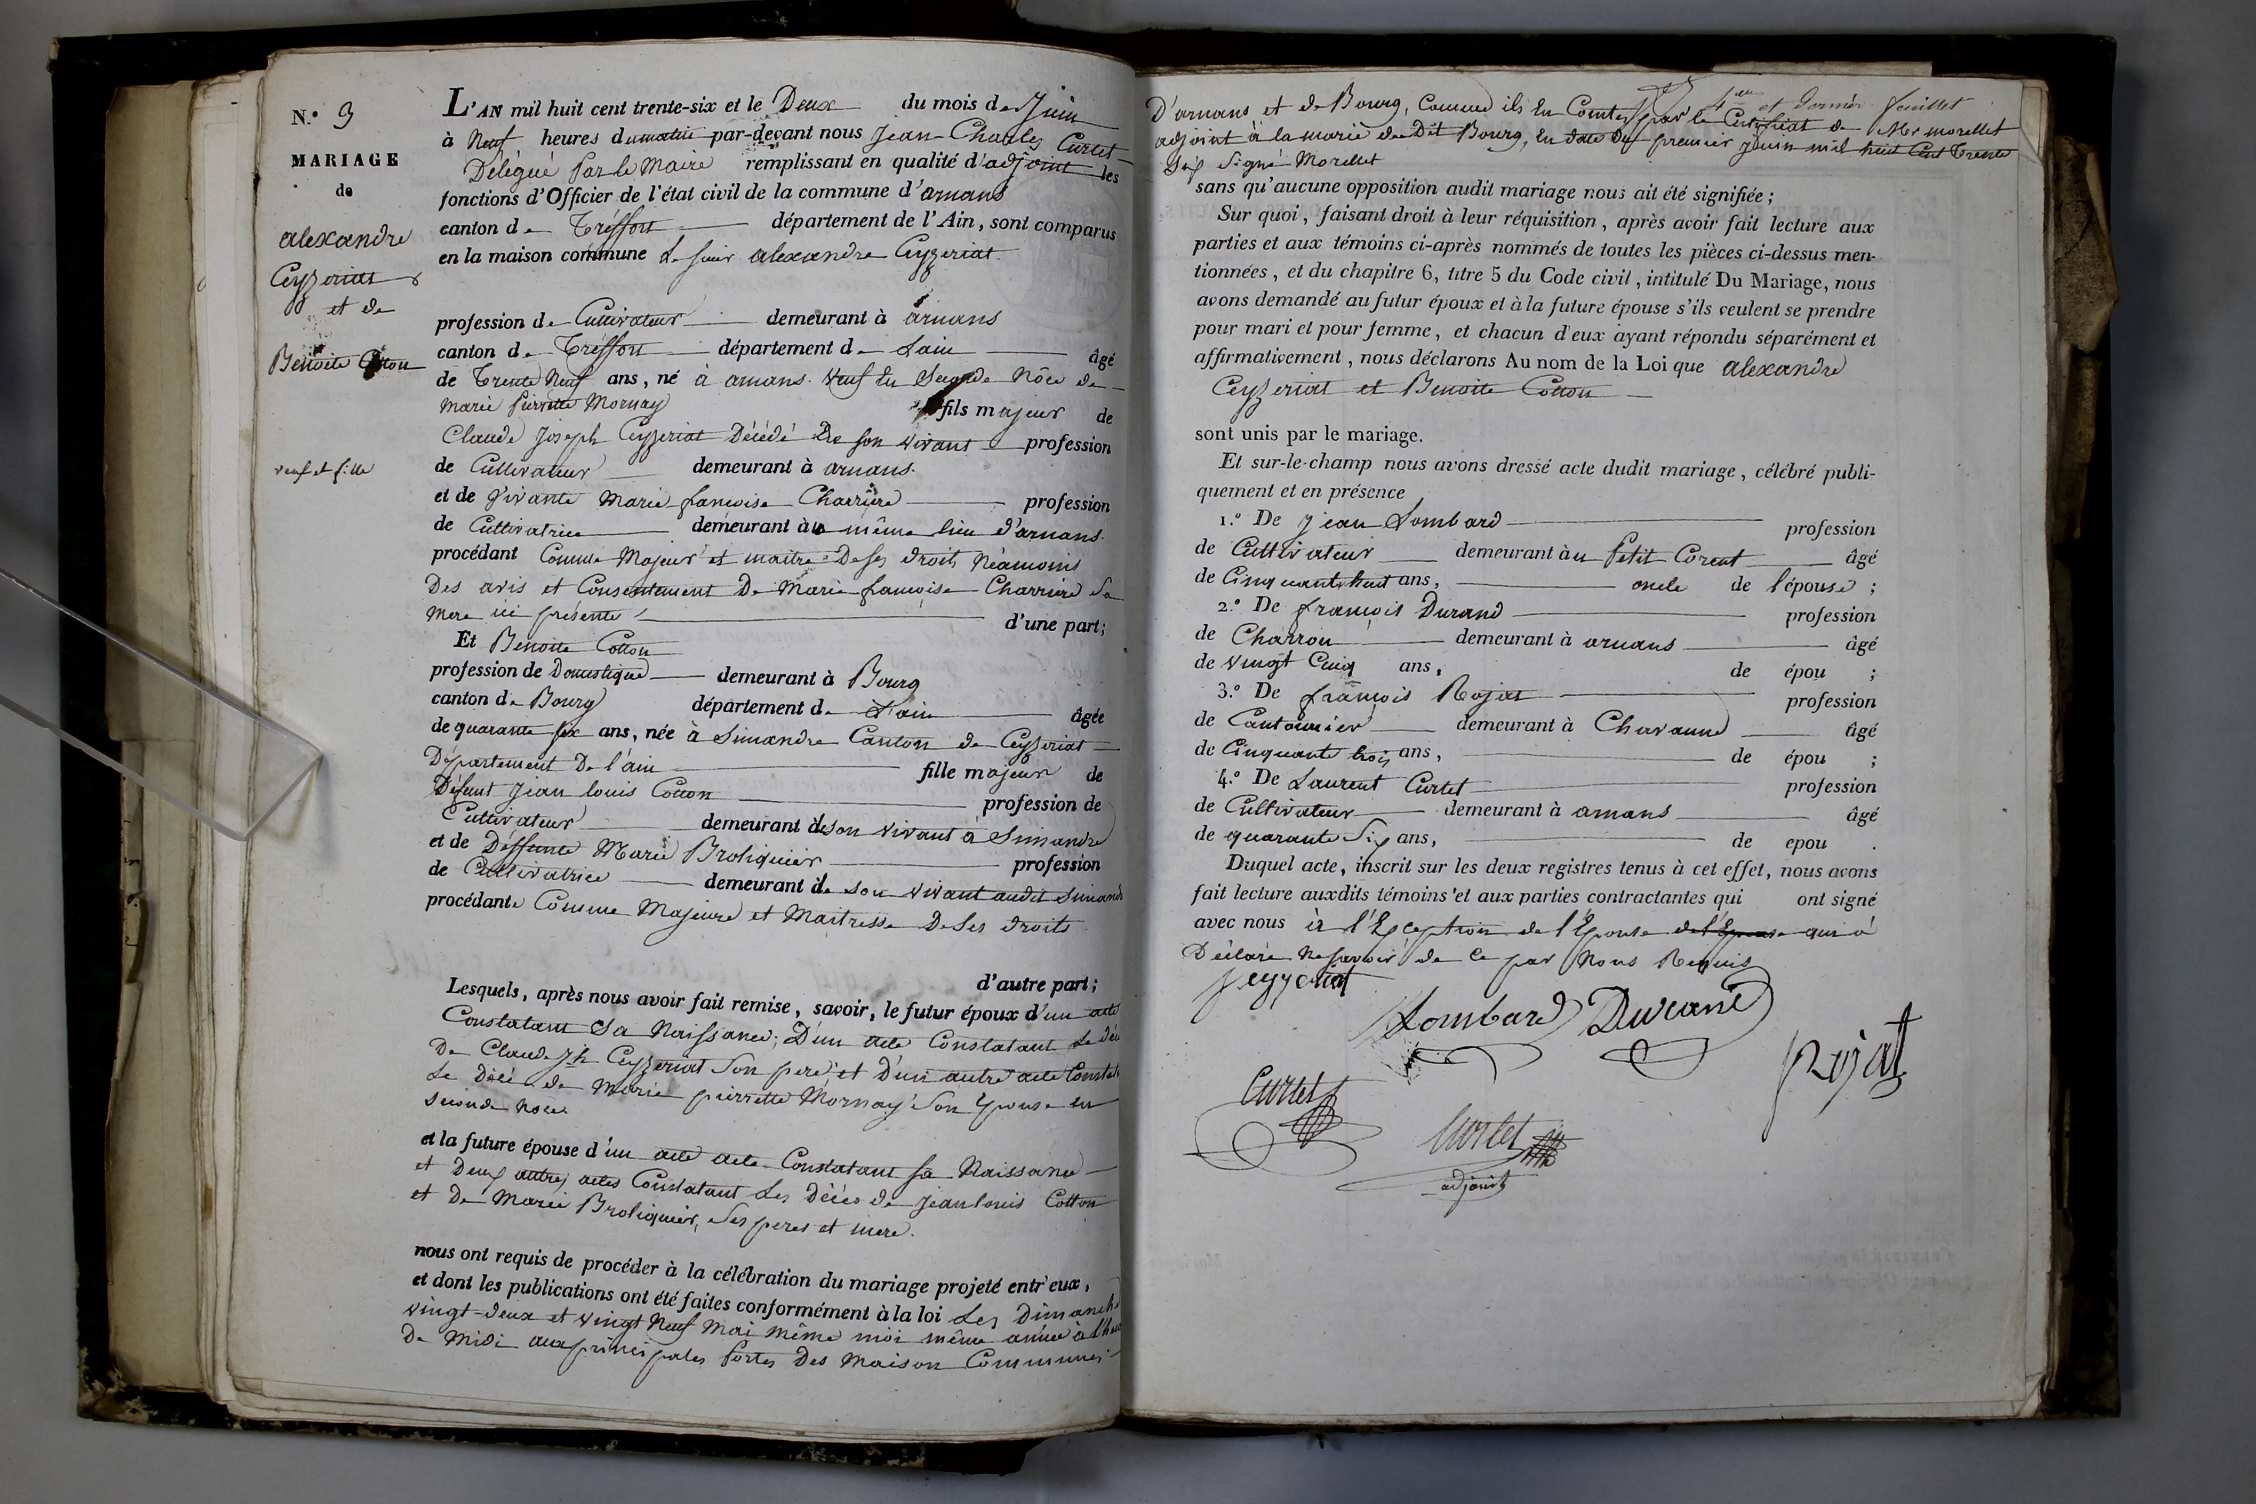 N.º 3
MARIAGE
de
alexandre
Ceyzeriat
et de
Benoite Cotton
veuf et fille
L'AN mil huit cent trente-six et le Deux du mois de Juin
à Neuf heures du matin par-devant nous Jean-Charles Curtet
Délégué par le Maire remplissant en qualité d'adjoint les
fonctions d'Officier de l'état civil de la commune d'arnans
canton de Tréffort département de l'Ain, sont comparus
en la maison commune Le sieur alexandre Ceyzeriat
profession de Cultivateur demeurant à arnans
canton de Tréffort département de Lain âgé
de Trente Neuf ans, né à arnans veuf En Segonde Nôce de
Marie Pierrette Mornay fils majeur de
Claude Joseph Ceyzeriat Décédé De son vivant profession
de Cultivateur demeurant à arnans.
et de vivante Marie françoise Charriere profession
de Cultivatrice demeurant au même lieu d'arnans.
procédant Comme Majeur et maitre De ses droits Néamoins
Des avis et Consentement De Marie françoise Charriere Sa
mere ici présente d'une part;
Et Benoite Cotton
profession de Domestique demeurant à Bourg
canton de Bourg département de L'ain âgée
de quarante six ans, née à Simandre Canton de Ceyzeriat
Département De l'ain fille majeure de
Défunt Jean louis Cotton profession de
Cultivateur demeurant de son vivant à Simandre
et de Déffunte Marie Broliquier profession
de Cultivatrice demeurant de son vivant audit Simandre
procédante Comme Majeure et Maitresse De Ses droits
d'autre part;
Lesquels, après nous avoir fait remise, savoir, le futur époux d'un acte
Constatant Sa Naissance; D'un acte Constatant Le déc
De Claude Jh Ceyzeriat Son pere et D'un autre acte Constat
Le Décé de Marie pierrette Mornay Son Epouse en
seconde Noce
et la future épouse d'un acte acte Constatant sa Naissance
et Deux autres actes Constatant Les Décés de Jean louis Cotton
et De Marie Broliquier, Ses peres et mere.
nous ont requis de procéder à la célébration du mariage projeté entr'eux,
et dont les publications ont été faites conformément à la loi Les Dimanche
vingt-deux et vingt Neuf Mai même moi même année à l'heu
De Midi aux principales Portes Des Maison Communes
4me et dernier feuillet
D'arnans et de Bourg, Comme ils En Conste par le Certificat de Mr Morellet
adjoint à la mairie du Dit Bourg, En date Du premier Juin mil huit Cent Trente
Six Signé Morellet
sans qu'aucune opposition audit mariage nous ait été signifiée;
Sur quoi, faisant droit à leur réquisition, après avoir fait lecture aux
parties et aux témoins ci-après nommés de toutes les pièces ci-dessus men-
tionnées, et du chapitre 6, titre 5 du Code civil, intitulé Du Mariage, nous
avons demandé au futur époux et à la future épouse s'ils veulent se prendre
pour mari et pour femme, et chacun d'eux ayant répondu séparément et
affirmativement, nous déclarons Au nom de la Loi que alexandre
Ceyzeriat et Benoite Cotton
sont unis par le mariage.
Et sur-le-champ nous avons dressé acte dudit mariage, célébré publi-
quement et en présence
1.º De Jean Lombard profession
de Cultivateur demeurant àu Petit Corent âgé
de Cinquante huit ans, oncle de l'épouse;
2.º De françois Durand profession
de Charron demeurant à arnans âgé
de vingt Cinq ans, de épou ;
3.º De françois Rojat profession
de Cantonnier demeurant à Chavanne âgé
de Cinquante trois ans, de épou ;
4.º De Laurent Curtet profession
de Cultivateur demeurant à arnans âgé
de quarante Six ans, de epou .
Duquel acte, inscrit sur les deux registres tenus à cet effet, nous avons
fait lecture auxdits témoins et aux parties contractantes qui ont signé
avec nous à l'Exception de l'Epouse de l'Epouse qui à
Déclaré Ne Savoir de Ce par Nous Requis
Ceyzeriat
Lombard Durand
Rojat
Curtet
Curtet
adjoint